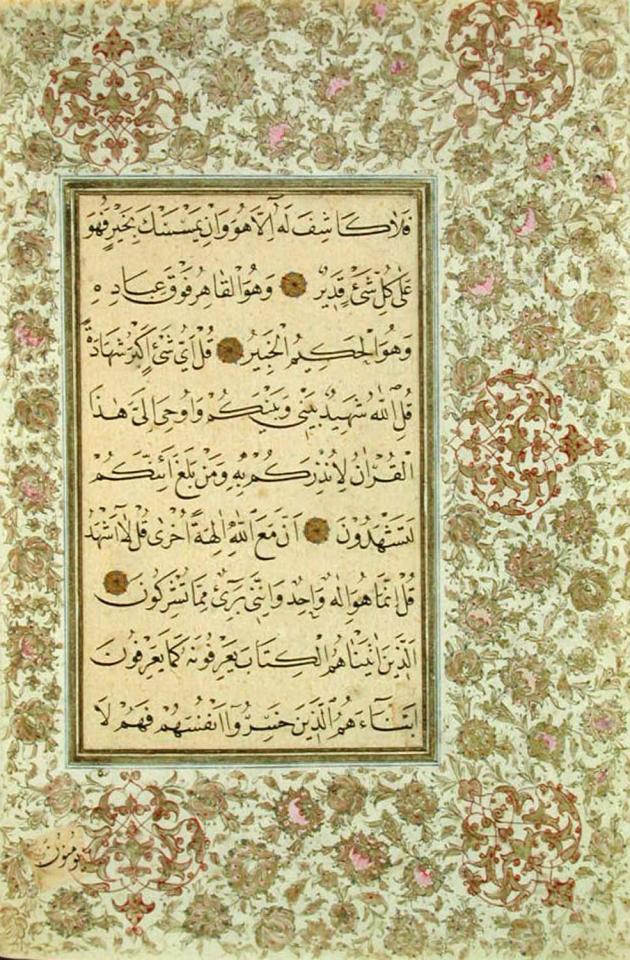 فَلَا كَاشِفَ لَهُ اِلَّا هُوَ وَاِنْ يَمْسَسْكَ بِخَيْرٍ فَهُوَ
عَلٰى كُلِّ شَىْءٍ قَدِيرٌ وَهُوَ الْقَاهِرُ فَوْقَ عِبَادِهِ
وَهُوَ الْحَكِيمُ الْخَبِيرُ قُلْ اَىُّ شَىْءٍ اَكْبَرُ شَهَادَةً
قُلِ اللّٰهُ شَهِيدٌ بَيْنِى وَبَيْنَكُمْ وَاُوحِىَ اِلَىَّ هٰذَا
الْقُرْاٰنُ لِاُنْذِرَكُمْ بِهِ وَمَنْ بَلَغَ اَئِنَّكُمْ
لَتَشْهَدُونَ اَنَّ مَعَ اللّٰهِ اٰلِهَةً اُخْرٰى قُلْ لَا اَشْهَدُ
قُلْ اِنَّمَا هُوَ اِلٰهٌ وَاحِدٌ وَاِنَّنِى بَرِىءٌ مِمَّا تُشْرِكُونَ
اَلَّذِينَ اٰتَيْنَاهُمُ الْكِتَابَ يَعْرِفُونَهُ كَمَا يَعْرِفُونَ
اَبْنَاءَهُمْ اَلَّذِينَ خَسِرُوا اَنْفُسَهُمْ فَهُمْ لَا
يؤمنون